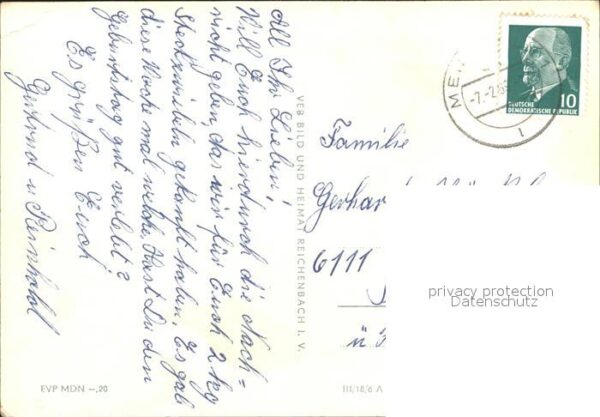 All Ihr Lieben!
Will Euch hierdurch die Nach=
richt geben, das wir für Euch 2 kg
Steckzwiebeln gekauft haben. Es gab
diese Woche mal welche. Hast Du den
Geburtstag gut verlebt?
Es grüßen Euch
Gertrud u Reinhold
EVP MDN –,20
VEB BILD UND HEIMAT REICHENBACH I. V.
III/18/6 A
DEUTSCHE
DEMOKRATISCHE REPUBLIK
10
ME
-7.-2.6
1
Familie
Gerhar
6111
ü.
privacy protection
Datenschutz